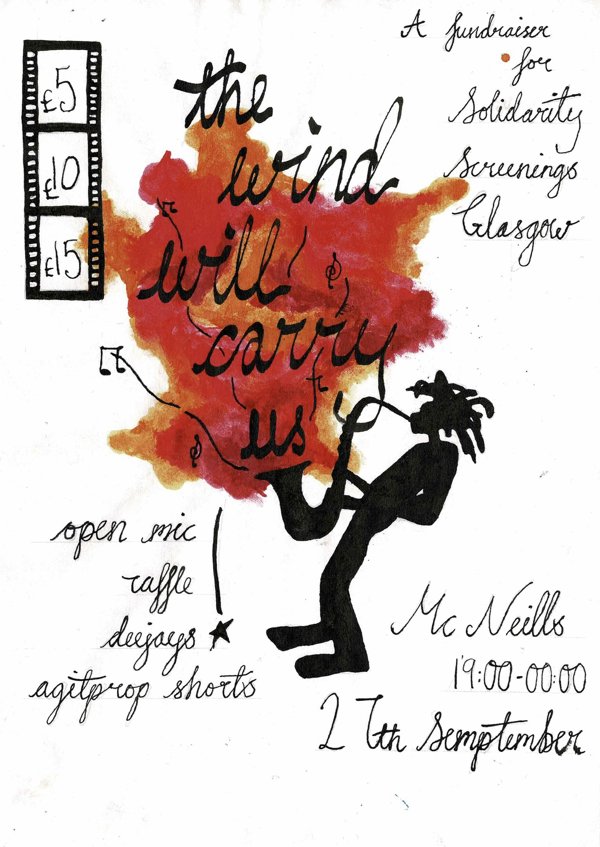 £5
£10
£15
the
wind
will
carry
us
A fundraiser
for
Solidarity
Screenings
Glasgow
open mic
raffle
deejays
agitprop shorts
Mc Neills
19:00-00:00
27th Semptember